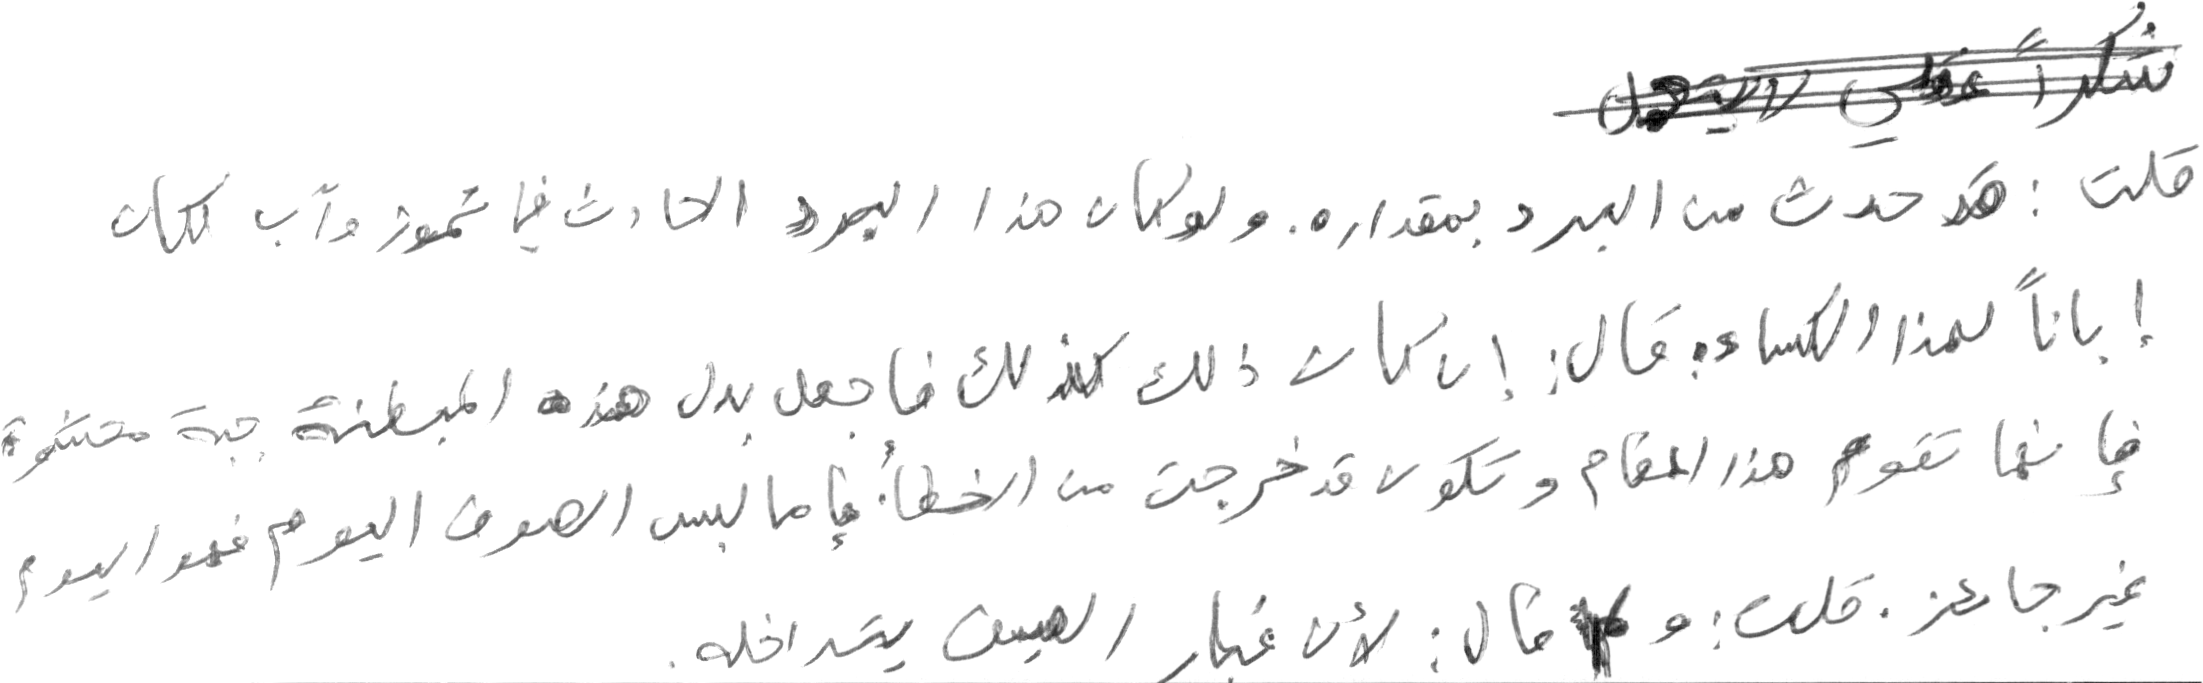 شكراً
قلت: قد حدث من البرد بمقداره. ولو كان هذا البرد الحادث في تموز وآب لكان
إباناً لهذا الكساء. قال: إن كان ذلك كذلك فاجعل بدل هذه المبطنة جبة محشوة
فإنها تقوم هذا المقام وتكون قد خرجت من الخطأ. فإما لبس الصوف اليوم فهو اليوم
غير جائز. قلت: ولم قال: لأن غبار الصيف يتداخله.